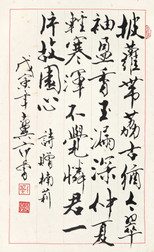 披蘿帶荔古猶今翠
袖盈香玉漏深仲夏
輕寒渾不覺憐君一
片故園心 詩贈
戊寅年